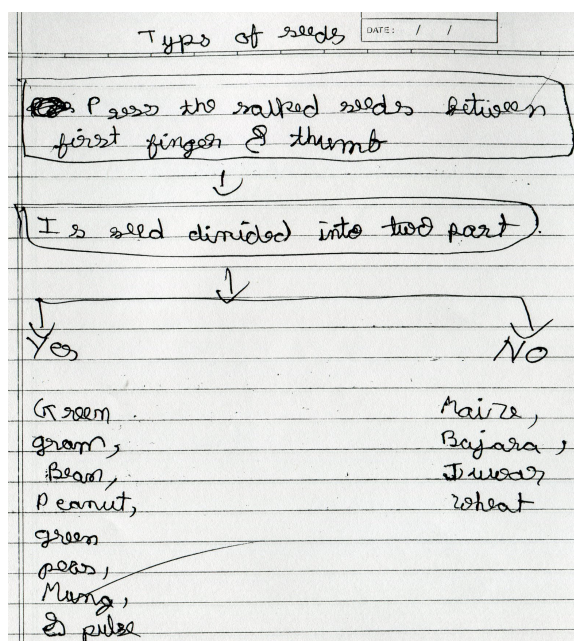 Types of seeds
DATE: / /
Press the salked seeds between
first finger & thumb
Is seed divided into two part.
Yes
NO
Green
gram,
Bean,
Peanut,
green
peas,
Mung,
& pulse
Maize,
Bajara,
Juwar
wheat